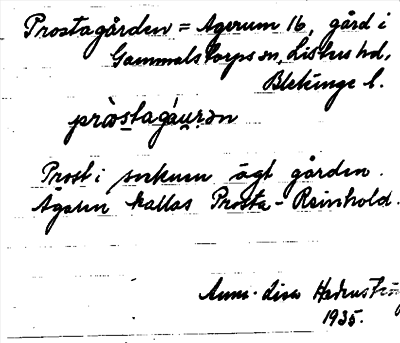 Prostagården = Agerum 16, gård i
Gammalstorps sn, Listers hd,
Blekinge l.
pròstagáu̯r̥ən
Prost i socknen ägt gården.
Ägaren kallas Prosta-Reinhold.
Anna-Lisa
1935.